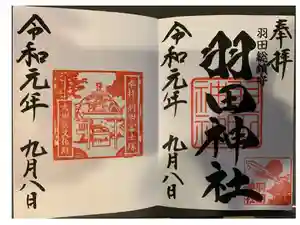 奉拝
羽田総鎮守
羽田神社
令和元年 九月八日
令和元年 九月八日